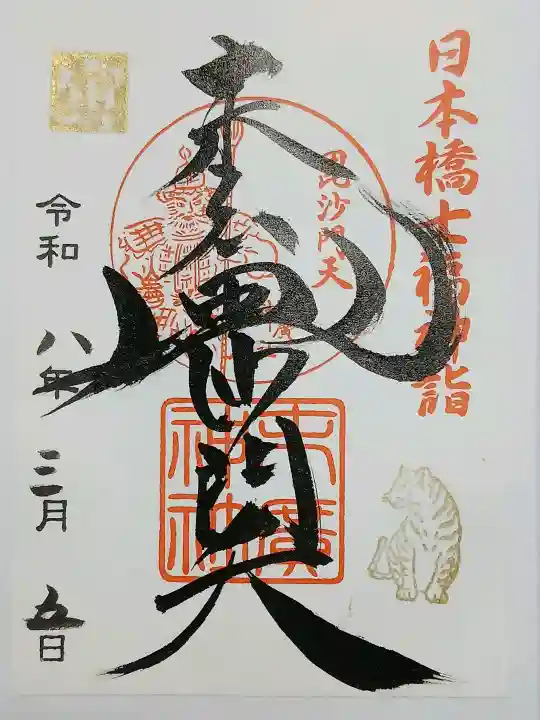 日本橋七福神詣
毘沙門天
末廣
毘沙門天
末廣
神社
令和 八年 三月 五日